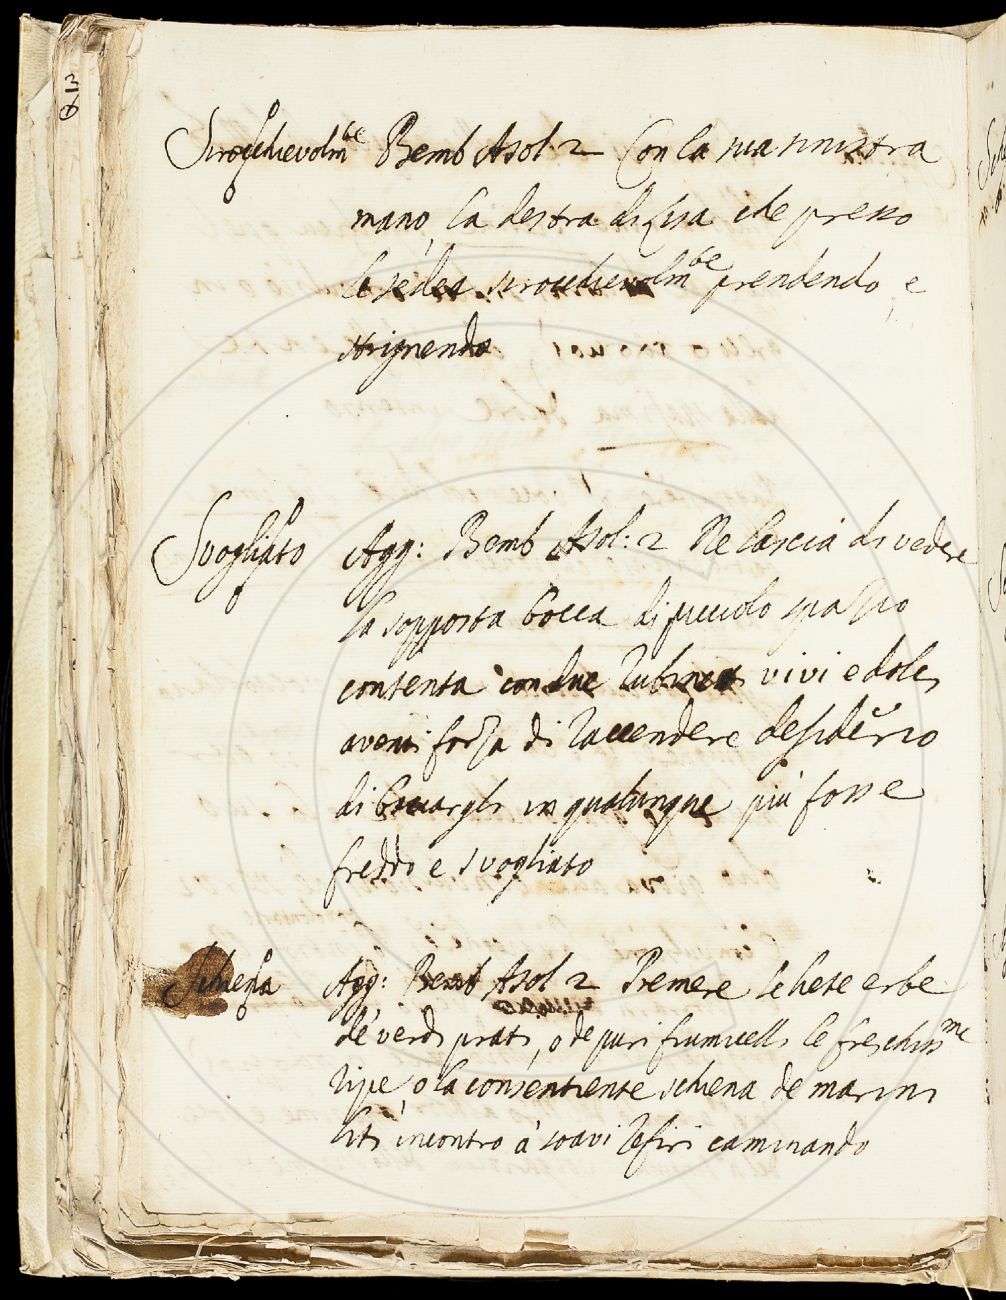 Sirocchievolm.te Bemb Asol. 2 Con la sua sinistra
mano, la destra di Lisa che presso
le sedea sirocchievolm.te prendendo, e
strignendo
Svogliato Agg: Bemb Asol: 2 Ne lascia di vedere
la sopposta bocca di picciolo spazio
contenta con due rubinetti vivi e dolci
aventi forza di raccendere desiderio
di basciargli in qualunque più fosse
freddo e svogliato
Schiena Agg: Bemb Asol 2 Premere le liete erbe
de verdi prati, o de puri fiumicelli le freschiss.me
ripe, o la consentiente schiena de marini
liti incontro à soavi Zefiri caminando